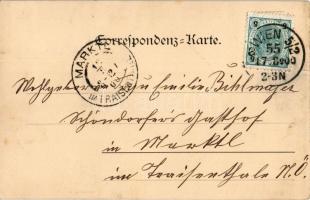 Correspondenz-Karte.
MARKTL
IM TRAISENT
WIEN
55
2-3N
Wohlgeboren Frau Emilie Bihlmayer
Schöndorfer's Gasthof
in Marktl
im Traisenthale N.Ö.